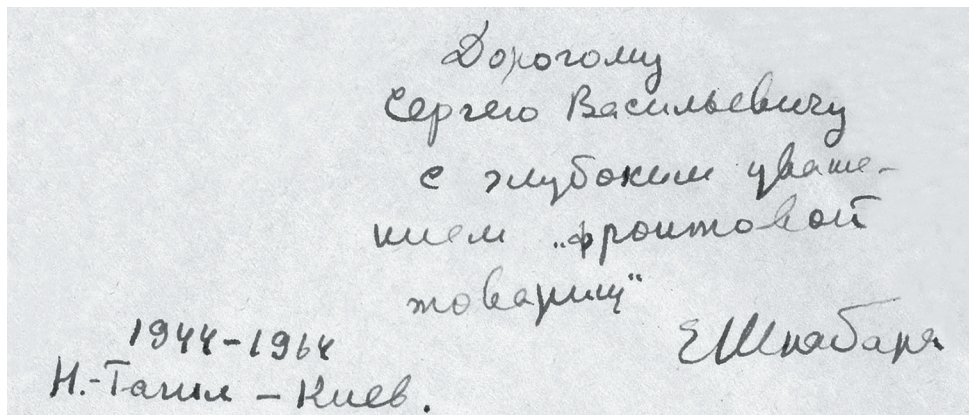 Дорогому
Сергею Васильевичу
с глубоким уваже-
нием „фронтовой
товарищ“
1944-1964
Н.-Тагил – Киев.